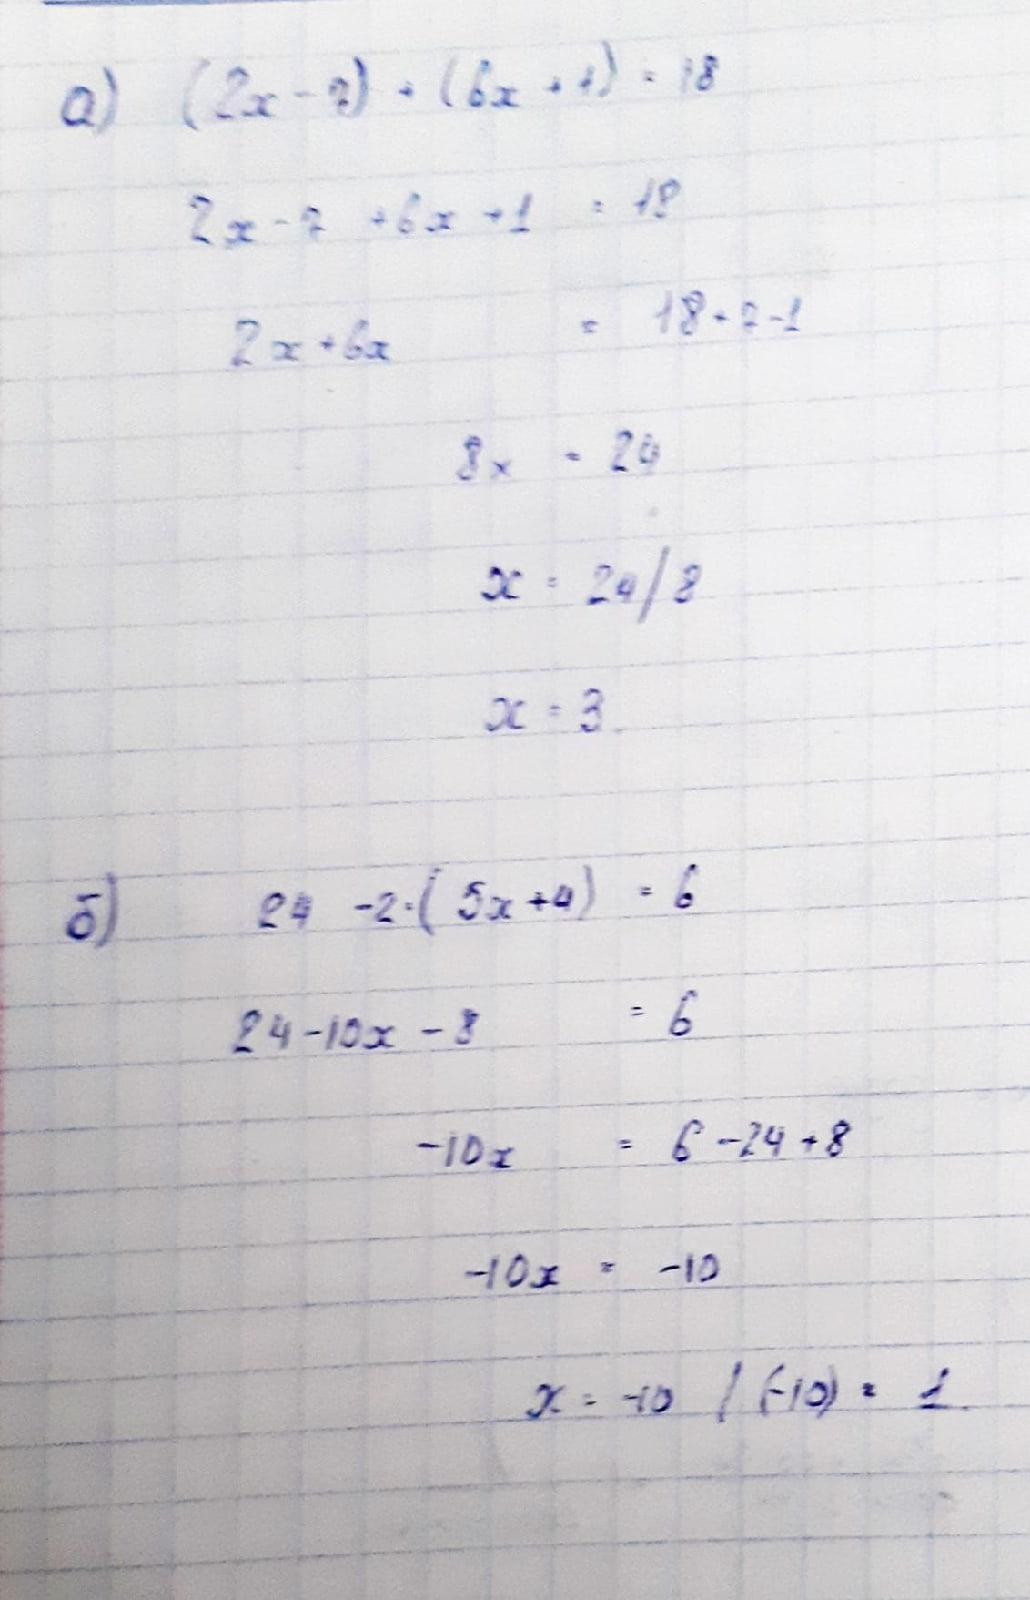 а) (2x - 7) + (6x + 1) = 18
2x - 7 + 6x + 1 = 18
2x + 6x = 18 + 7 - 1
8x = 24
x = 24/8
x = 3
б) 24 - 2·(5x + 4) = 6
24 - 10x - 8 = 6
-10x = 6 - 24 + 8
-10x = -10
x = -10 / (-10) = 1.